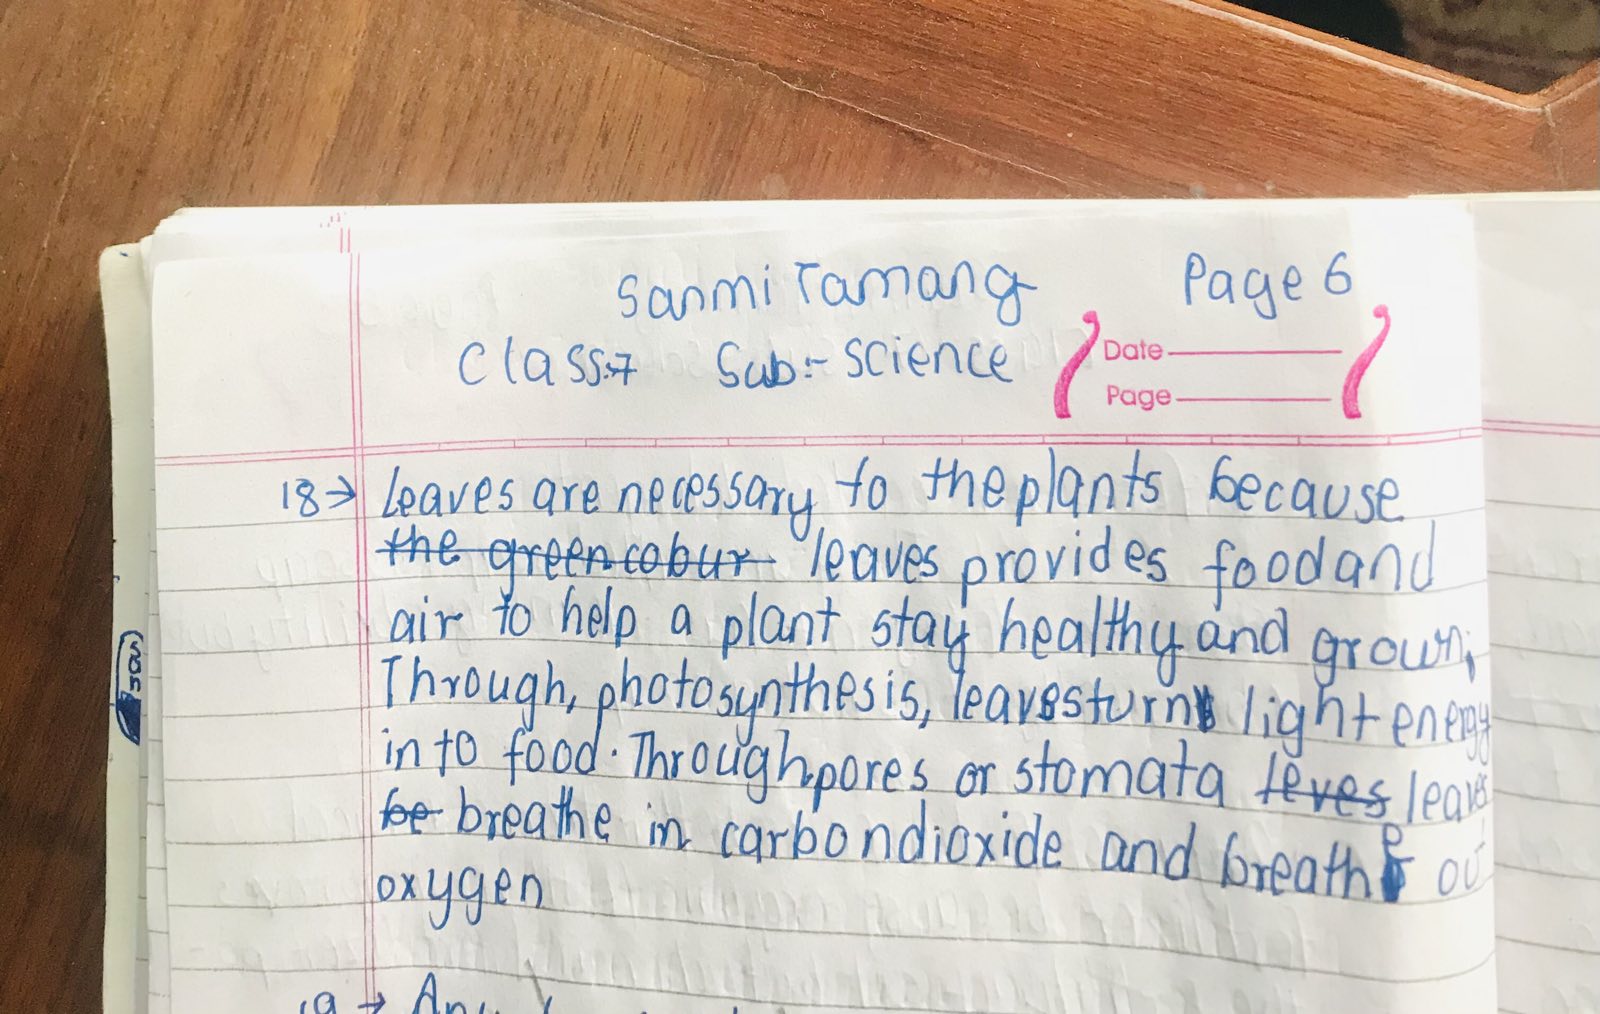 Sanmi Tamang Page 6
Class:7 Sub:- Science
Date
Page
18→ Leaves are necessary to the plants because
the green colour leaves provides food and
air to help a plant stay healthy and grown,
Through, photosynthesis, leaves turn light energy
into food. Through pores or stomata leves leaves
be breathe in carbondioxide and breathe
oxygen
19 →